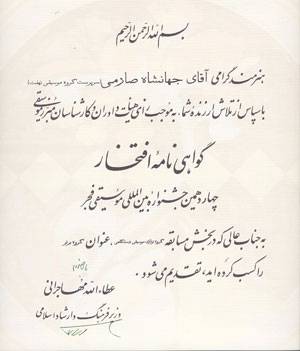 بسم الله الرحمن الرحیم
هنرمند گرامی آقای جهانشاه صارمی (سرپرست گروه موسیقی نهفت)
با سپاس از تلاش ارزنده شما، به موجب رأی هیئت داوران و کارشناسان هنر موسیقی
گواهی نامه افتخار
چهاردهمین جشنواره بین المللی موسیقی فجر
به جناب عالی که در بخش مسابقه گروه نوازی موسیقی دستگاهی، عنوان گروه برتر
را کسب کرده اید، تقدیم می شود.
عطاءالله مهاجرانی
وزیر فرهنگ و ارشاد اسلامی